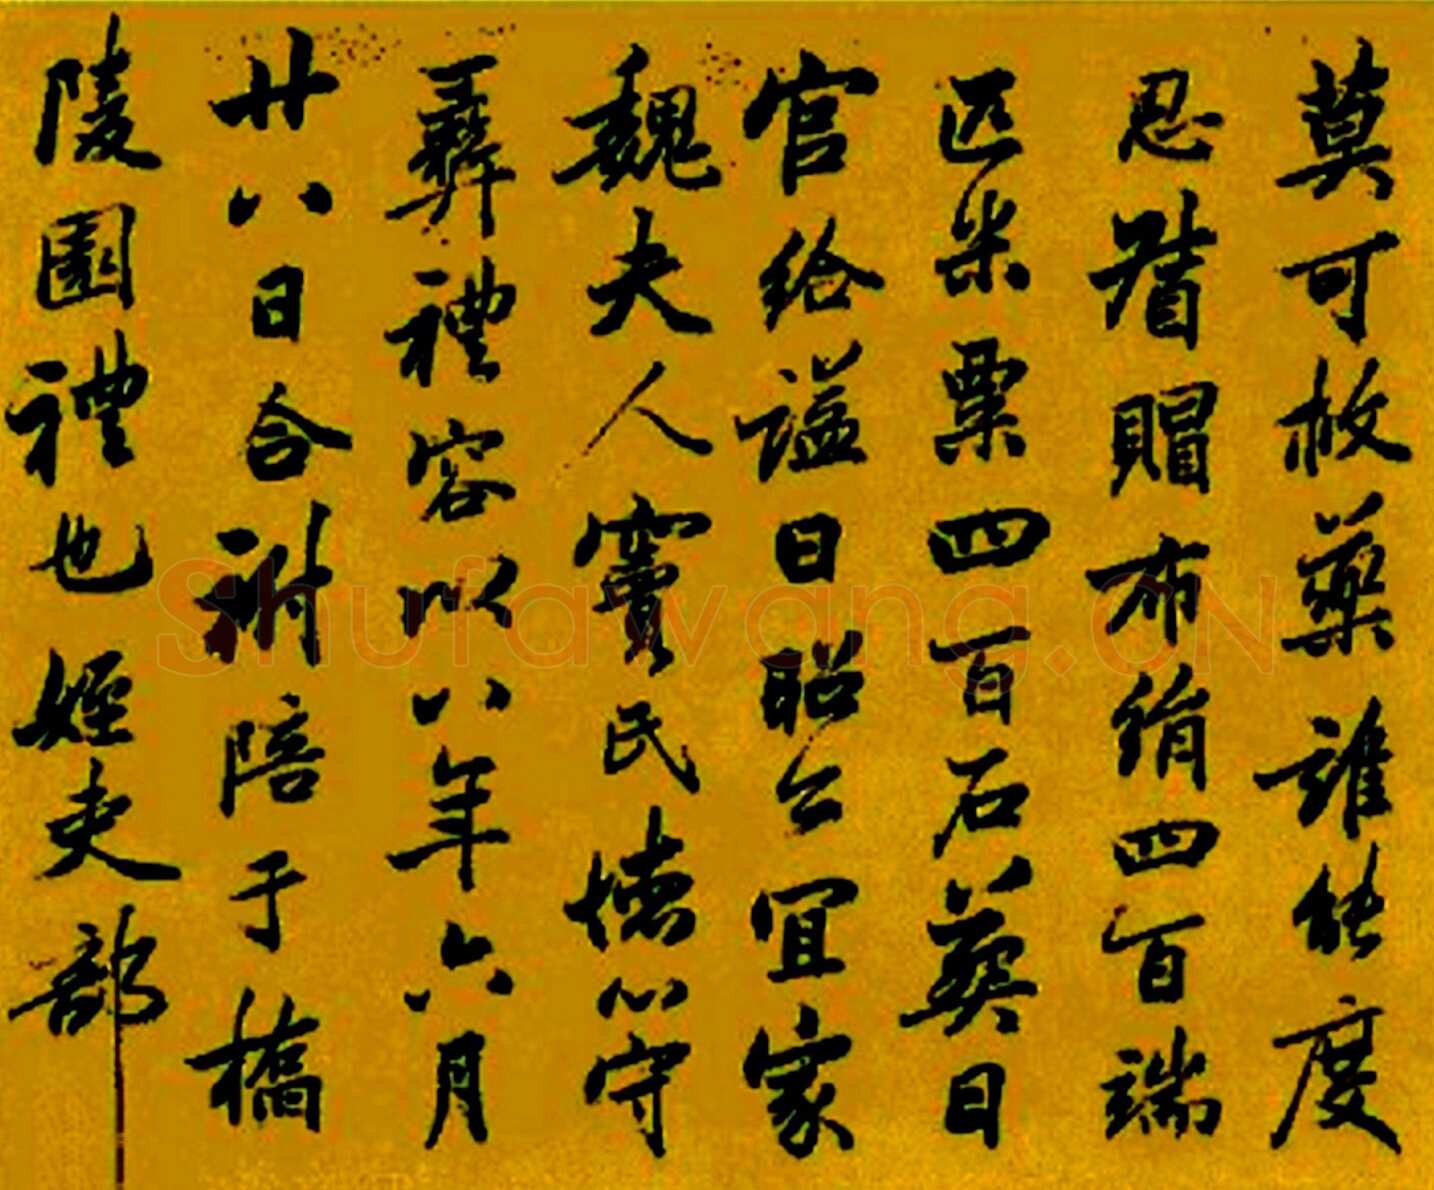 莫可救藥誰能度
思賵賵布絹四百端
匹米粟四百石葬日
官給謚曰昭公宜家
魏夫人竇氏德心守
彝禮容以八年六月
廿八日合祔陪于橋
陵園禮也姪吏部
Shufawang.CN